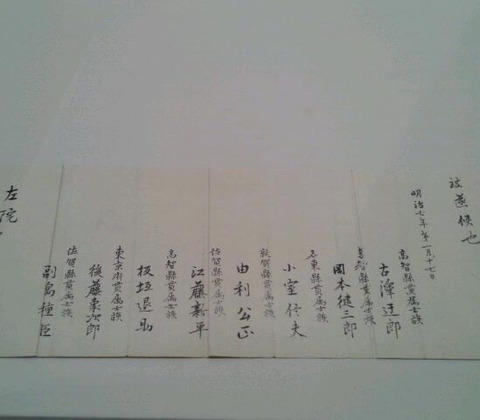 被遊候也
明治七年第一月十七日
高智縣貫属士族
古澤迂郎
高智縣貫属士族
岡本健三郎
名東縣貫属士族
小室信夫
敦賀縣貫属士族
由利公正
佐賀縣貫属士族
江藤新平
高智縣貫属士族
板垣退助
東京府貫属士族
後藤象次郎
佐賀縣貫属士族
副島種臣
左院